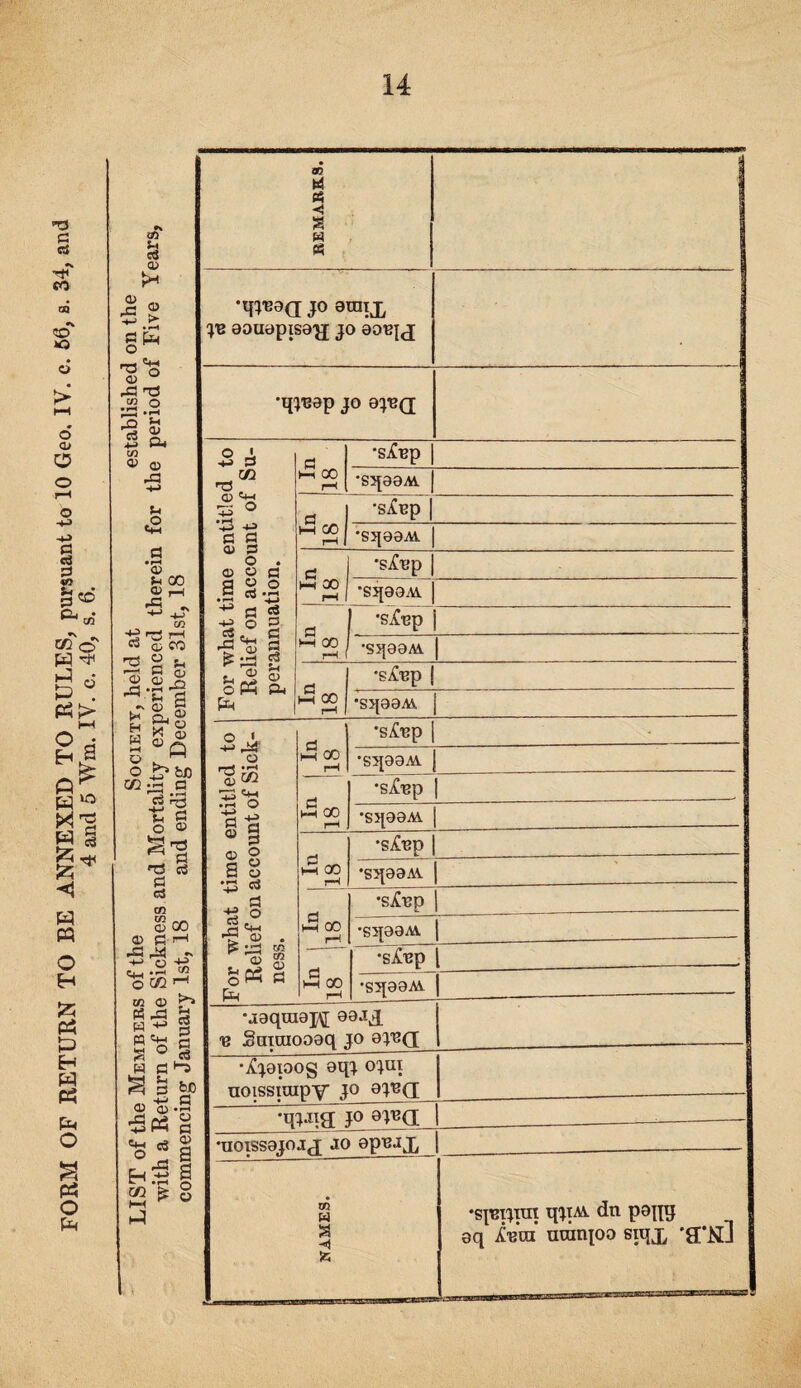 14
FORM OF RETURN TO BE ANNEXED TO RULES, pursuant to 10 Geo. IV. c. 56, s. 34, and
4 and 5 Wm. IV. c. 40, s. 6.
LIST of the MEMBERS of the SOCIETY, held at established on the
with a Return of the Sickness and Mortality experienced therein for the period of Five Years,
commencing January 1st, 18 and ending December 31st, 18
NAMES.
[N.B. This column may be
filled up with initials.
Trade or Profession.
Date of Birth.
Date of Admission
into the Society.
Date of becoming a
Free Member.
For what time entitled to
Relief on account of Sick-
ness.
In
18
weeks.
days.
In
18
weeks.
days.
In
18
weeks.
days.
In
18
weeks.
days.
In
18
weeks.
days.
For what time entitled to
Relief on account of Su-
perannuation.
In
18
weeks.
days.
In
18
weeks.
days.
In
18
weeks.
days.
In
18
weeks.
days.
In
18
weeks.
days.
Date of death.
Place of Residence at
Time of Death.
REMARKS.